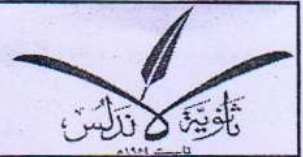 ثانويّة الاندلس
تأسست ١٩٦٤م